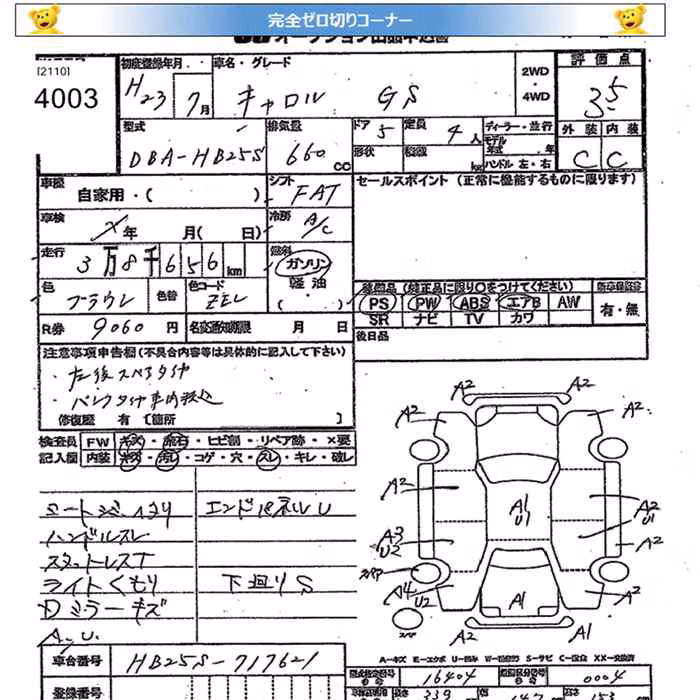 完全ゼロ切りコーナー
オークション出品申込書
[2110]
4003
初度登録年月
H23 7月
車名・グレード
キャロル GS
2WD
4WD
評価点
3.5
外装 内装
C C
型式
DBA-HB25S
排気量
660 CC
ドア 5
形状
定員 4人
積載
ディーラー・並行
モデル年式 年
ハンドル 左・右
車歴
自家用・( )
シフト
FAT
セールスポイント (正常に機能するものに限ります)
車検
年 月( 日)
冷房
A/C
走行
3万8千656km
燃料
ガソリン
軽油
( )
色
ブラウン
色替
色コード
ZEL
装備品 (純正品に限り○をつけてください)
新車保証書
PS PW ABS エアB AW
有・無
SR ナビ TV カワ
R券 9060円
名変通知期限 月 日
後日品
注意事項申告欄 (不具合内容等は具体的に記入して下さい)
・左後スペアタイヤ
・パンクタイヤ車内積込
修復歴 有 [箇所 ]
検査員 FW キズ・飛石・ヒビ割・リペア跡・×要
記入欄 内装 キズ・汚レ・コゲ・穴・スレ・キレ・破レ
シートシミ、ヨゴリ エンドパネルU
ハンドルスレ
スタットレスT
ライトくもり 下廻りS
Dミラーキズ
A,U
A2 A2
A2 A2
A2 A1 U1 A2 U1
A3 U2 A2
スペア
A4 U2 A1 A2
スペア A1
A-キズ E-エクボ U-凹み W-板金跡 S-サビ C-腐食 XX-交換済
車台番号
HB25S-717621
型式指定番号 16404
類別区分番号 0004
登録番号
長さ 339 cm
幅 147 cm